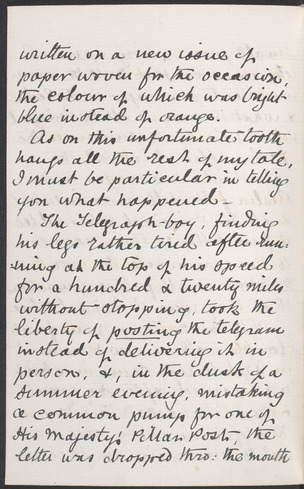 written on a new issue of
paper woven for the occasion,
the colour of which was bright
blue instead of orange.
As on this unfortunate tooth
hangs all the rest of my tale,
I must be particular in telling
you what happened —
The Telegraph-boy, finding
his legs rather tired after run-
-ning at the top of his speed
for a hundred & twenty miles
without stopping, took the
liberty of posting the telegram
instead of delivering it in
person, &, in the dusk of a
summer evening, mistaking
a common pump for one of
His Majesty's Pillar Post, the
letter was dropped thro: the mouth